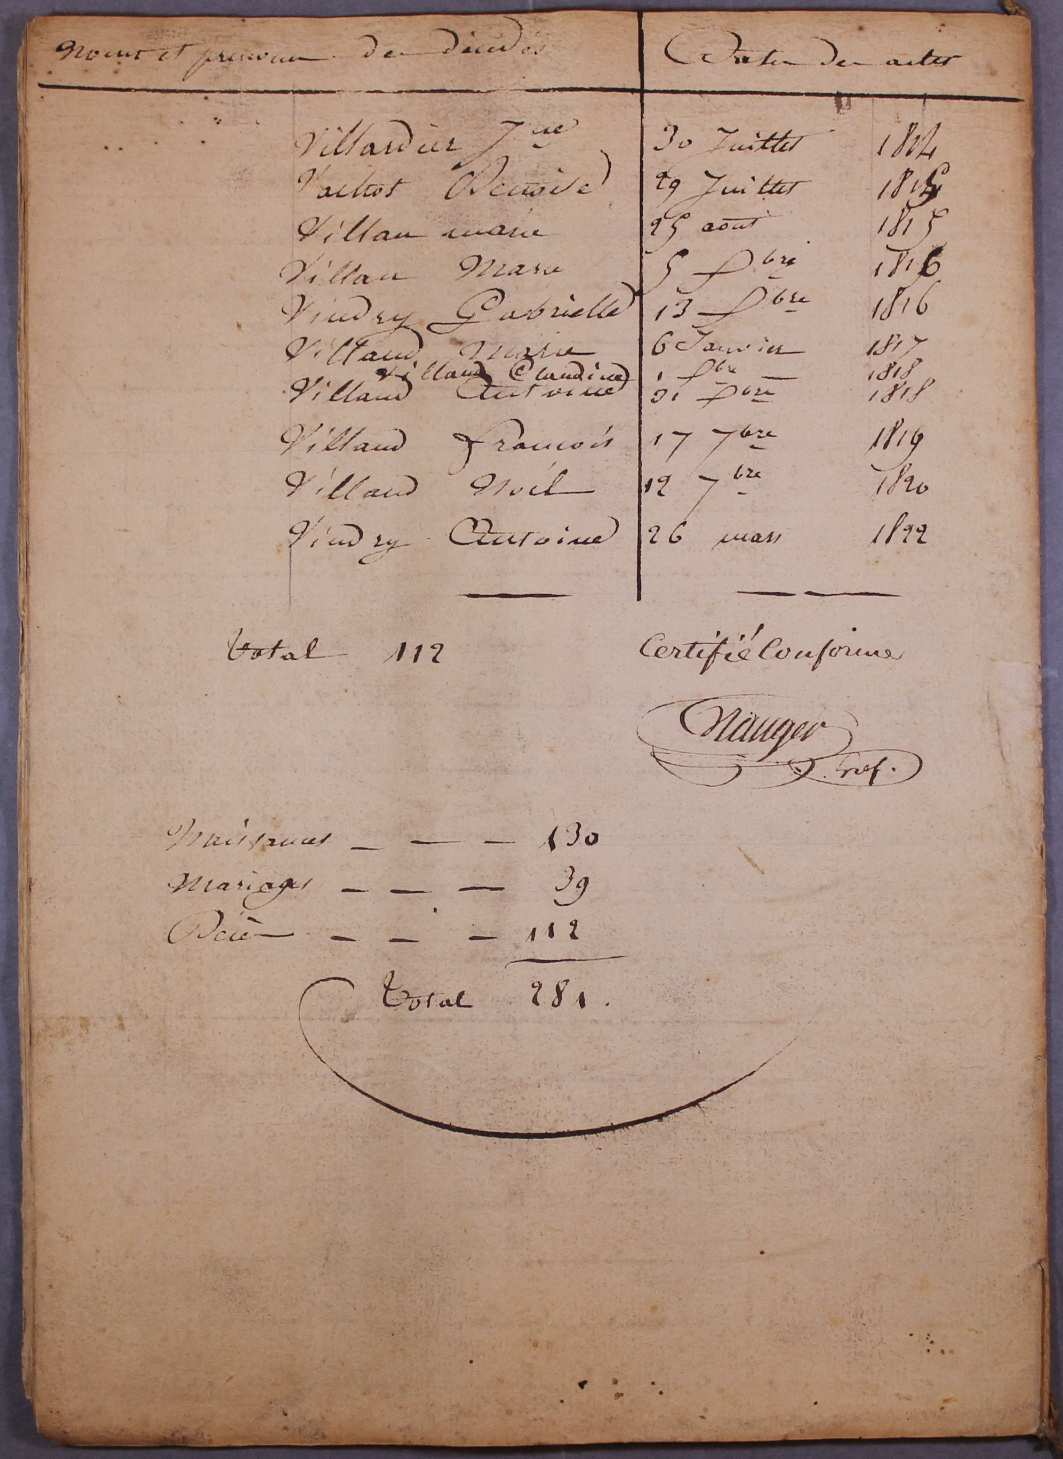 Noms et prénoms des décédés Dates des actes
Villardier 30 Juillet 1814
Vachot Benoise 29 Juillet 1815
Villau marie 25 aout 1815
Villau Marie 5 bre 1816
Vindry Gabrielle 13 bre 1816
Villaud Marie 6 Janvier 1817
Villaud Claudine 1 bre 1818
Villaud Antoine 31 bre 1818
Villaud François 17 7bre 1819
Villaud Noël 12 7bre 1820
Vindry Antoine 26 mars 1822
Total 112 Certifié Conforme
Nauger
Gref.
Naissances — — — 130
Mariages — — — 39
Décès — — — 112
Total 281.